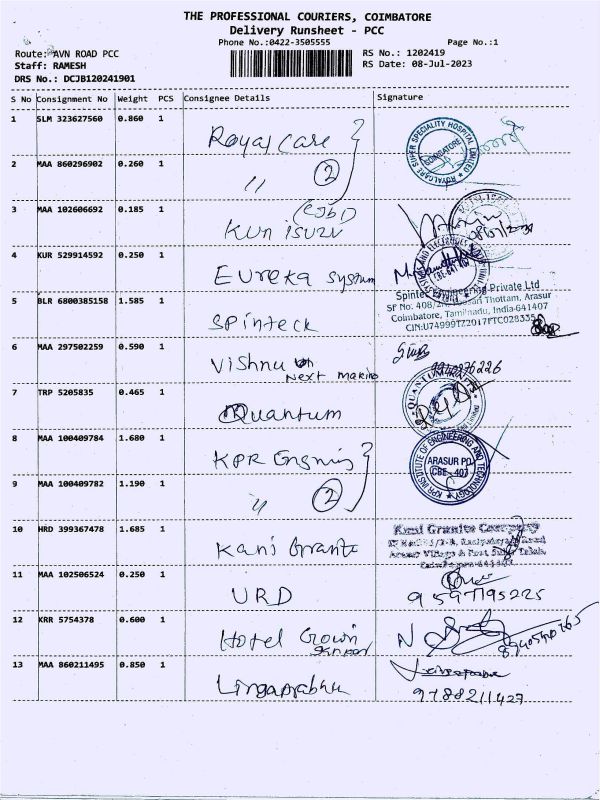 THE PROFESSIONAL COURIERS, COIMBATORE
Delivery Runsheet - PCC
Phone No.:0422-3505555 Page No.:1
Route: AVN ROAD PCC RS No.: 1202419
Staff: RAMESH RS Date: 08-Jul-2023
DRS No.: DCJB120241901
S No Consignment No Weight PCS Consignee Details Signature
1 SLM 323627560 0.860 1 Royal care
ROYALCARE SUPER SPECIALITY HOSPITAL LIMITED COIMBATORE
2 MAA 860296902 0.260 1 〃 2
3 MAA 102606692 0.185 1 KUN ISUZU
4 KUR 529914592 0.250 1 Eureka system
5 BLR 6800385158 1.585 1 Spinteck
Spintec Engineering Private Ltd
Thottam, Arasur
Coimbatore, Tamilnadu, India-641407
6 MAA 297502259 0.590 1 Vishnu
Next
7 TRP 5205835 0.465 1 Quantum
QUANTUM
8 MAA 100409784 1.680 1 KPR
KPR INSTITUTE OF ENGINEERING AND TECHNOLOGY ARASUR PO CBE - 407
9 MAA 100409782 1.190 1 〃 2
10 HRD 399367478 1.685 1 Kani Granite
Kani Granite Company
11 MAA 102506524 0.250 1 URD 9597195225
12 KRR 5754378 0.600 1 Hotel Crown
13 MAA 860211495 0.850 1 Lingaprabhu
9788211427